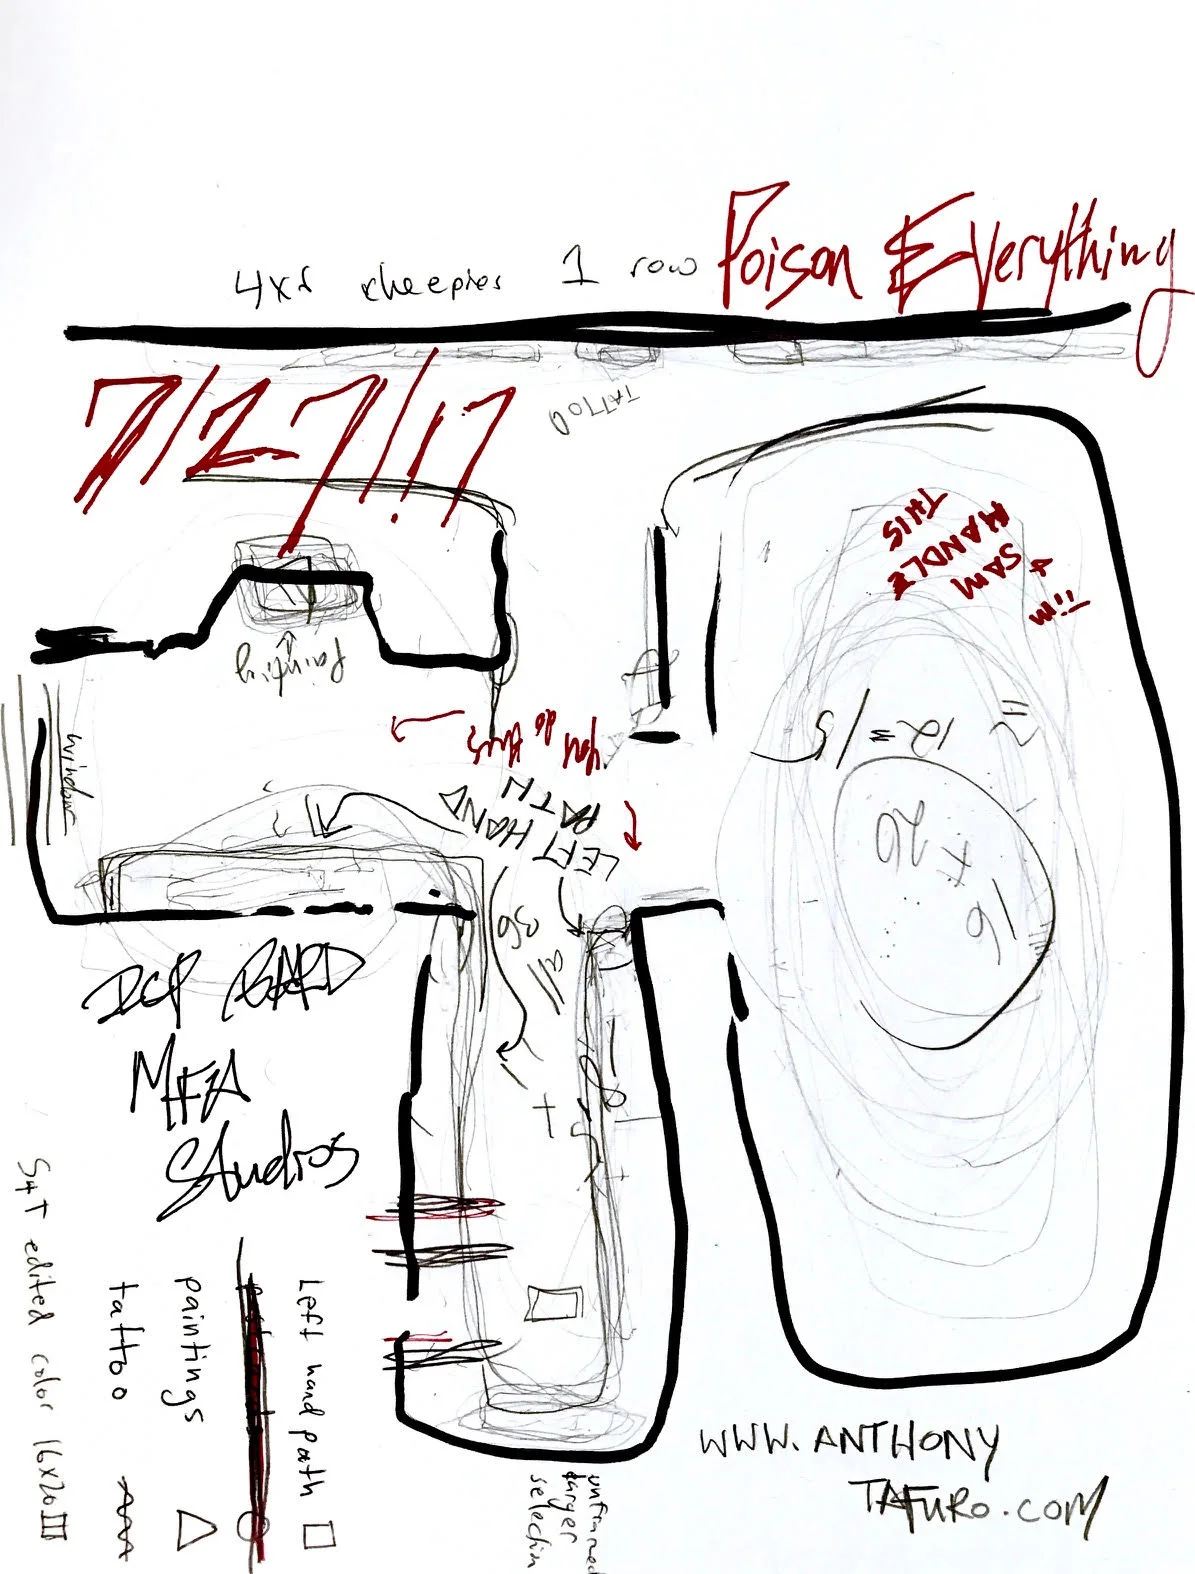 4x5 cheepies 1 row
Poison Everything
7/27/17
TATTOO
THIS
HANDLE
SAM
+
Jim
painting
window
you do this
LEFT HAND
PATH
12 = 15
16 x 20
36
all
DCP BARD
MFA
Studios
S+T edited color 16x20
tattoo
paintings
Left hand path
unframed
larger
selection
WWW.ANTHONY
TAFURO.COM